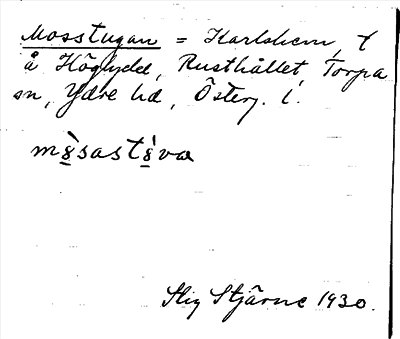 Mosstugan = Karlshem, t
å Höglycke, Rusthållet, Torpa
sn, Ydre hd, Österg. l.
mòsastóva
Stig Stjärne 1930.